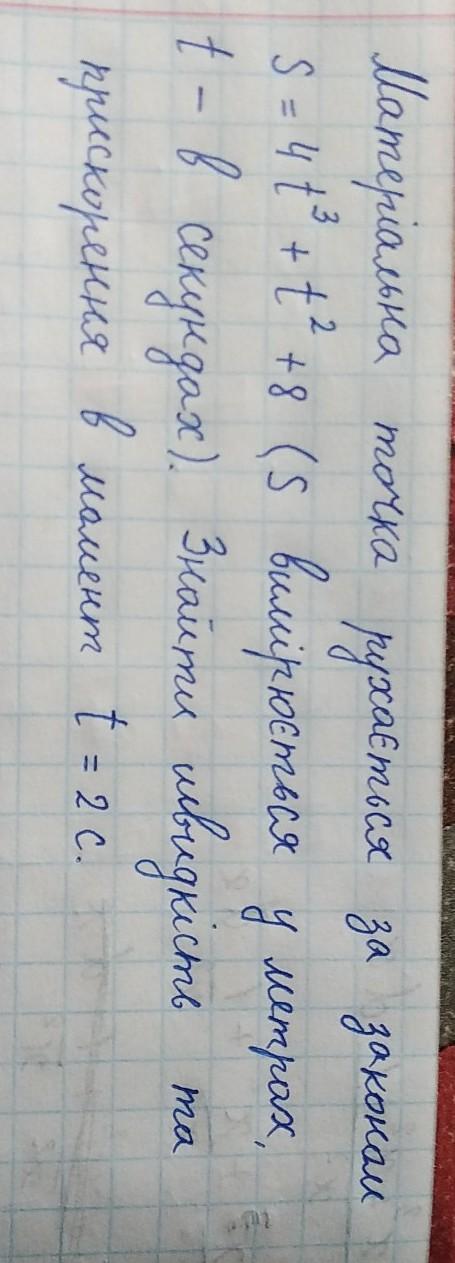 Матеріальна точка рухається за законом
S = 4t³ + t² + 8 (S вимірюється у метрах,
t – в секундах). Знайти швидкість та
прискорення в момент t = 2 с.